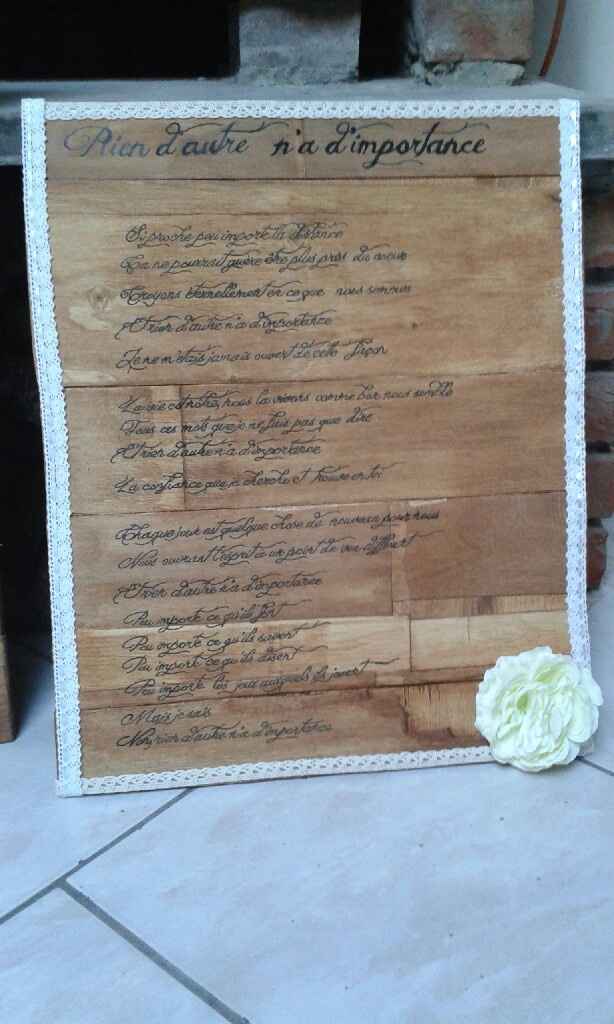 Rien d'autre n'a d'importance
Si proche peu importe la distance
Ca ne pourrait guère être plus près du coeur
Croyons éternellement en ce que nous sommes
Et rien d'autre n'a d'importance
Je ne m'étais jamais ouvert de cette façon
La vie est nôtre, nous la vivons comme bon nous semble
Tous ces mots que je ne fais pas que dire
Et rien d'autre n'a d'importance
La confiance que je cherche et trouve en toi
Chaque jour est quelque chose de nouveau pour nous
Nous ouvrant l'esprit à un point de vue différent
Et rien d'autre n'a d'importance
Peu importe ce qu'ils font
Peu importe ce qu'ils savent
Peu importe ce qu'ils disent
Peu importe les jeux auxquels ils jouent
Mais je sais
Non, rien d'autre n'a d'importance